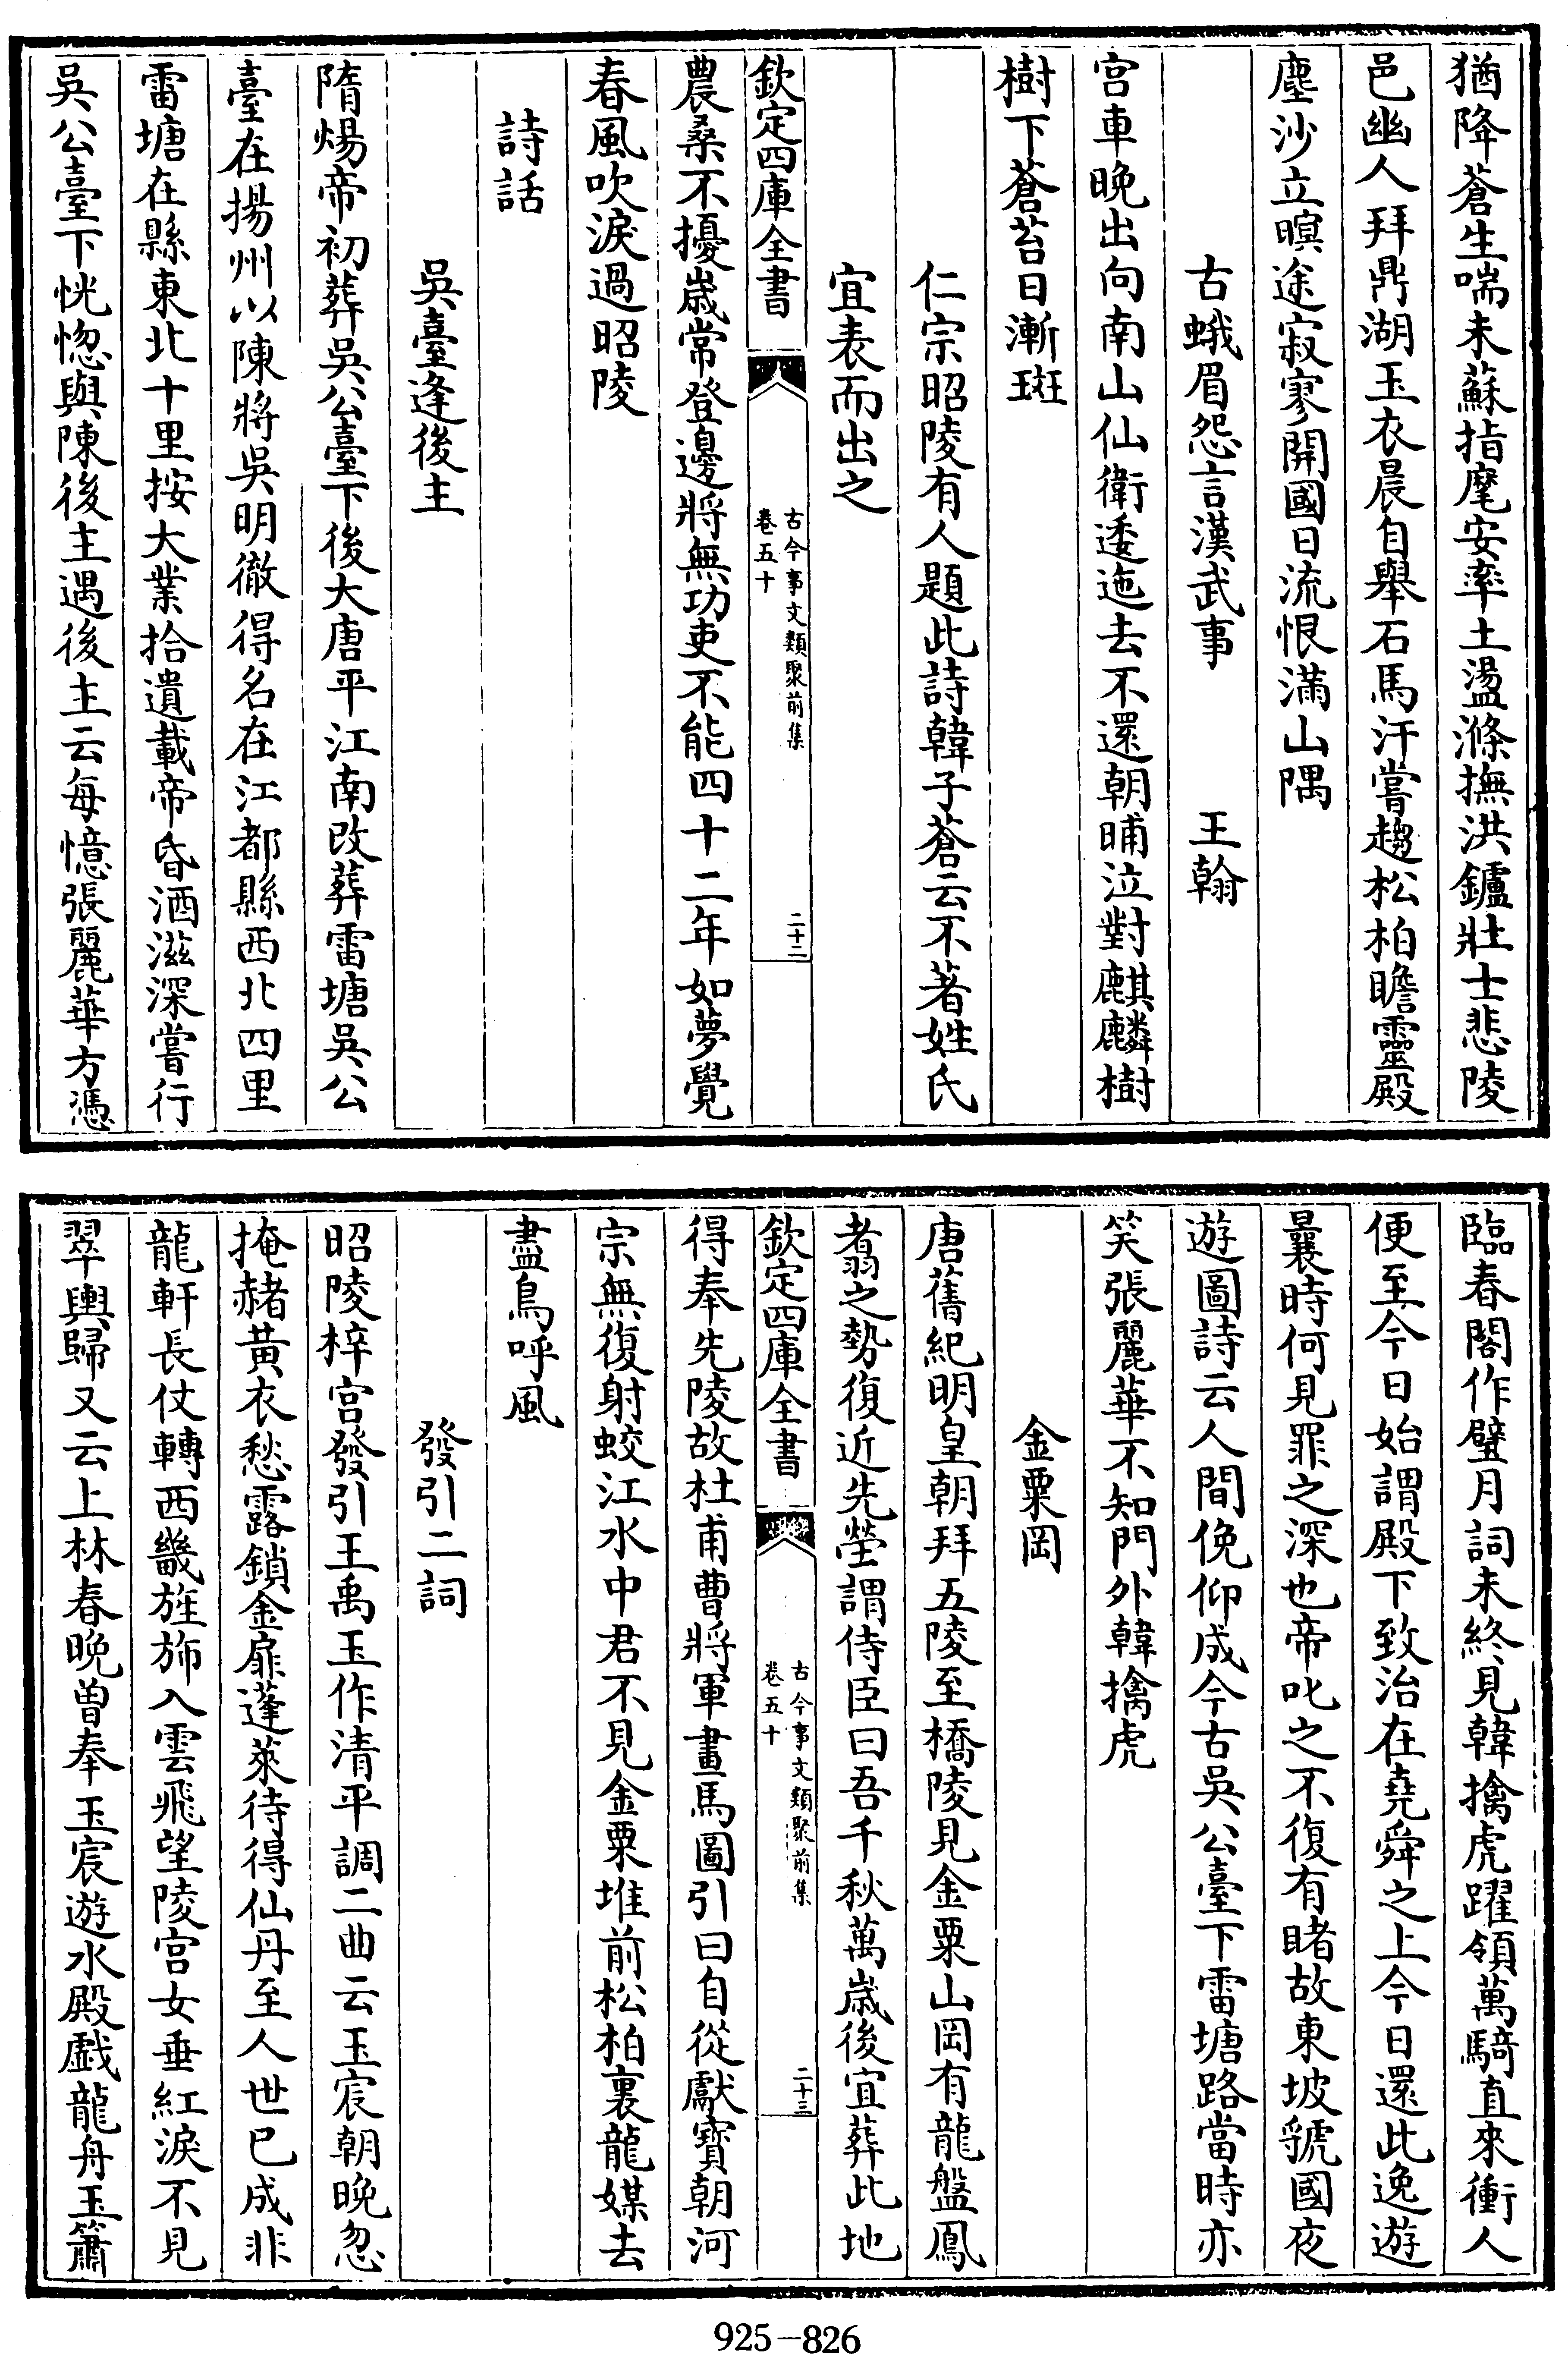 猶降蒼生喘未蘇指麾安率土盪滌撫洪鑪壯士悲陵
邑幽人拜鼎湖玉衣晨自舉石馬汗嘗趨松柏瞻靈殿
塵沙立暝途寂寥開國日流恨滿山隅
古蛾眉怨言漢武事 王翰
宮車晚出向南山仙衛逶迤去不還朝晡泣對麒麟樹
樹下蒼苔日漸斑
仁宗昭陵有人題此詩韓子蒼云不著姓氏
宜表而出之
欽定四庫全書 古今事文類聚前集 卷五十 二十二
農桑不擾歲常登邊將無功吏不能四十二年如夢覺
春風吹淚過昭陵
詩話
吳臺逢後主
隋煬帝初葬吳公臺下後大唐平江南改葬雷塘吳公
臺在揚州以陳將吳明徹得名在江都縣西北四里
雷塘在縣東北十里按大業拾遺載帝昏酒滋深嘗行
吳公臺下恍惚與陳後主遇後主云每憶張麗華方憑
臨春閣作璧月詞未終見韓擒虎躍領萬騎直來衝人
便至今日始謂殿下致治在堯舜之上今日還此逸遊
曩時何見罪之深也帝叱之不復有睹故東坡虢國夜
遊圖詩云人間俛仰成今古吳公臺下雷塘路當時亦
笑張麗華不知門外韓擒虎
金粟岡
唐舊紀明皇朝拜五陵至橋陵見金粟山岡有龍盤鳳
翥之勢復近先塋謂侍臣曰吾千秋萬歲後宜葬此地
欽定四庫全書 古今事文類聚前集 卷五十 二十三
得奉先陵故杜甫曹將軍畫馬圖引曰自從獻寶朝河
宗無復射蛟江水中君不見金粟堆前松柏裏龍媒去
盡鳥呼風
發引二詞
昭陵梓宮發引王禹玉作清平調二曲云玉宸朝晚忽
掩赭黃衣愁霧鎖金扉蓬萊待得仙丹至人世已成非
龍軒長仗轉西畿旌斾入雲飛望陵宮女垂紅淚不見
翠輿歸又云上林春晚曾奉玉宸遊水殿戲龍舟玉簫
925-826